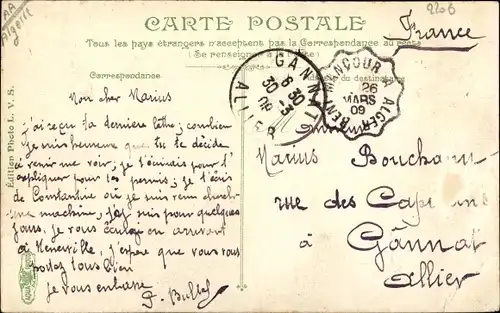 AA
Algérie
2206
CARTE POSTALE
France
Tous les pays étrangers n'acceptent pas la Correspondance au recto
(Se renseigner à la Poste)
Correspondance
du destinataire
GANNAT
6 30
30 -3
09
ALLIER
BENI MANCOUR A ALGER
26
MARS
09
Édition Photo L. V. S.
Mon cher Marius
j'ai reçu ta dernière lettre; combien
je suis heureuse que tu te décide
à venir me voir; je t'écrivais pour t'
expliquer pour les permis; je t'écris
de Constantine où je suis venu cherch-
une machine; j'ey suis pour quelques
jours. Je vous écris en arrivant
à Ménerville. J'espère que vous vous
portez tous bien
Je vous embrasse
Monsieur
Marius Bouchard
rue des Capucins
à Gannat
Allier